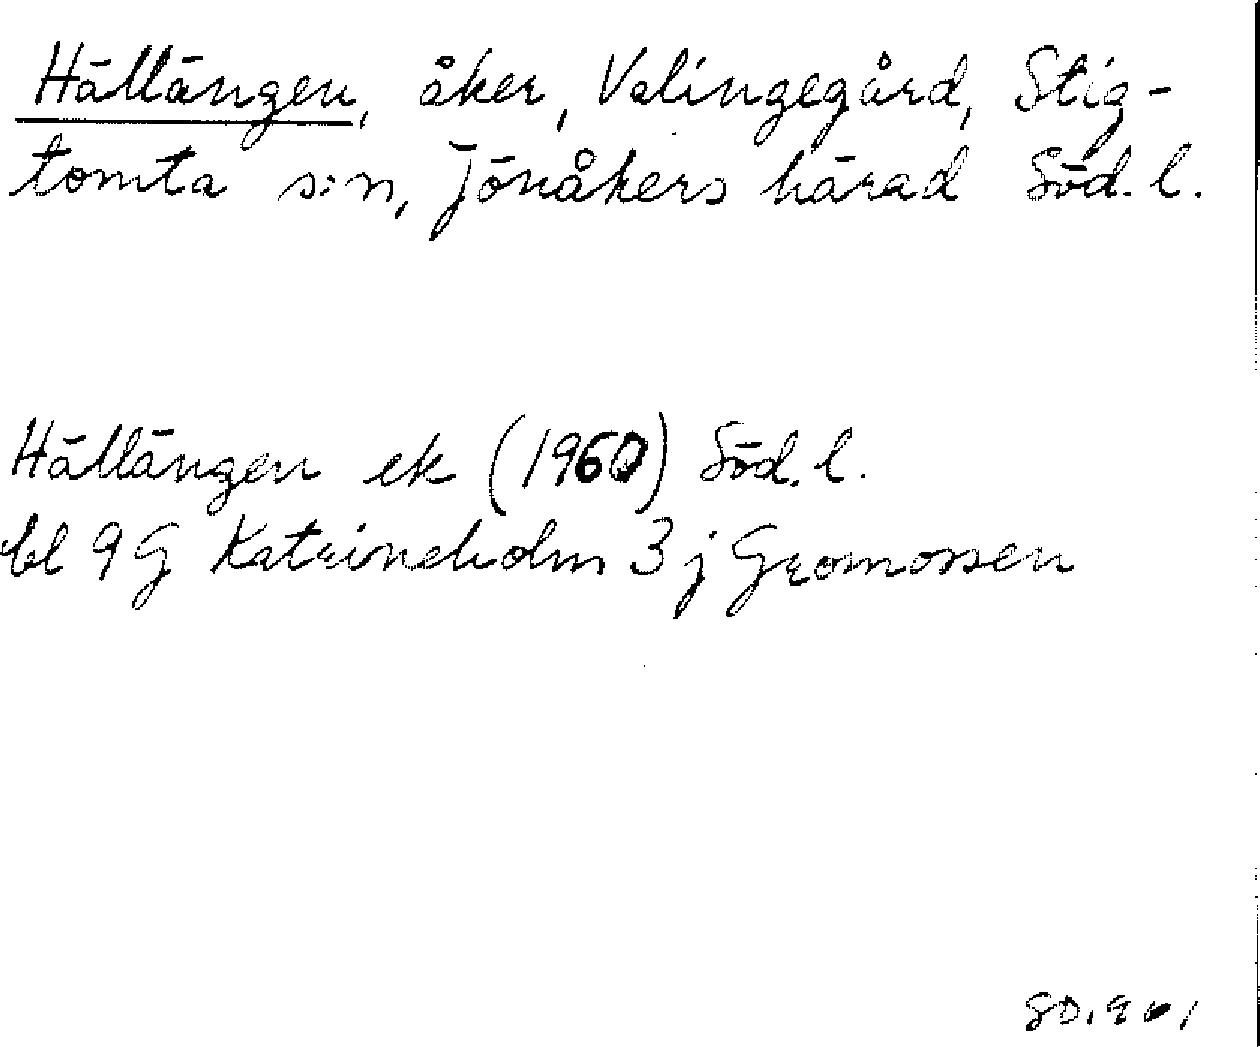 Hällängen, åker, Valingegård, Stig-
tomta s:n, Jönåkers härad Söd. l.
Hällängen ek (1960) Söd. l.
bl 9G Katrineholm 3 j Gromossen